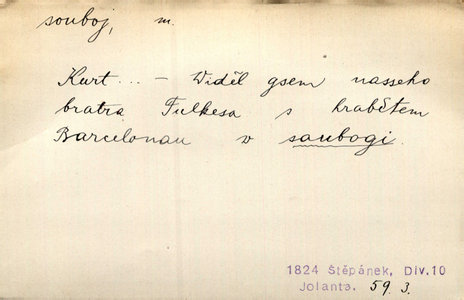 souboj, m.
Kurt... – Widěl gsem nasseho
bratra Fulkesa s hrabětem
Barcelonau w saubogi.
1824 Štěpánek, Div.10
Jolanta. 59. 3.